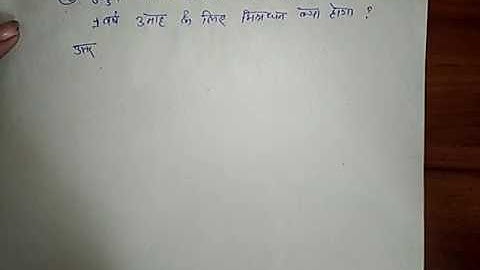 1 वर्ष 3 माह के लिए मिश्रधन क्या होगा ?
उत्तर